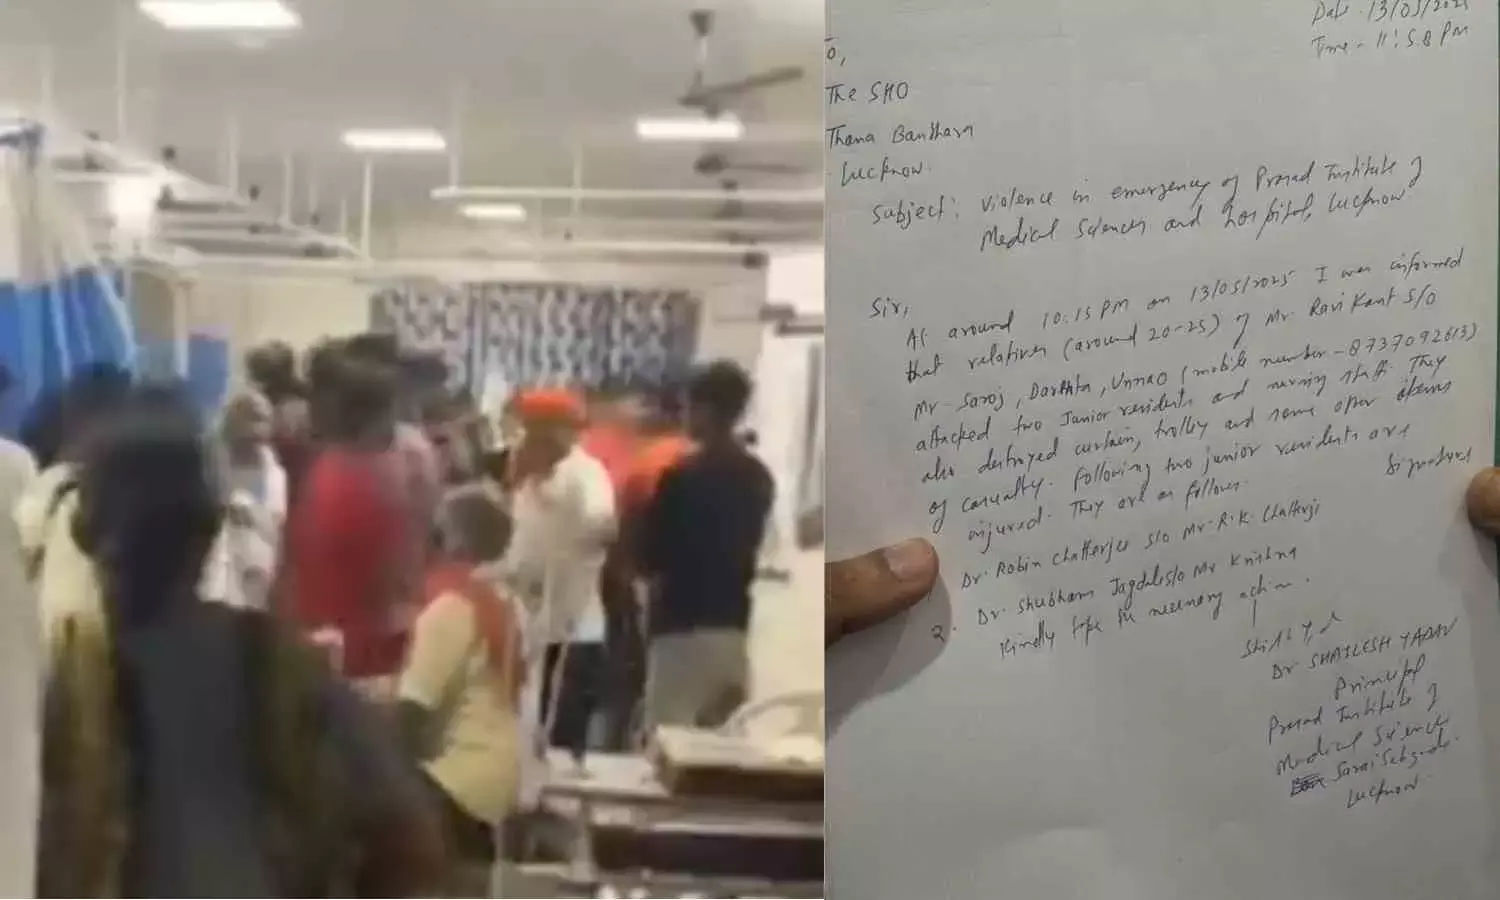 Date. 13/05/2025
Time - 11:58 PM
To,
The SHO
Thana Banthara
Lucknow.
Subject: Violence in emergency of Prasad Institute of
Medical Sciences and Hospital, Lucknow.
Sir,
At around 10:15 PM on 13/05/2025 I was informed
that relatives (around 20-25) of Mr. Ravi Kant S/O
Mr. Saroj, , Unnao (mobile number - 8737092613)
attacked two Junior residents and nursing staff. They
also destroyed curtain, trolley and some other items
of casualty. Following two junior residents are
injured. They are as follows.
Signature
Dr. Robin Chatterjee S/o Mr. R.K. Chatterji
2. Dr. Shubham Jagdale S/o Mr Krishna
Kindly take the necessary action.
Dr SHAILESH YADAV
Principal
Prasad Institute of
Medical Sciences
Lucknow.